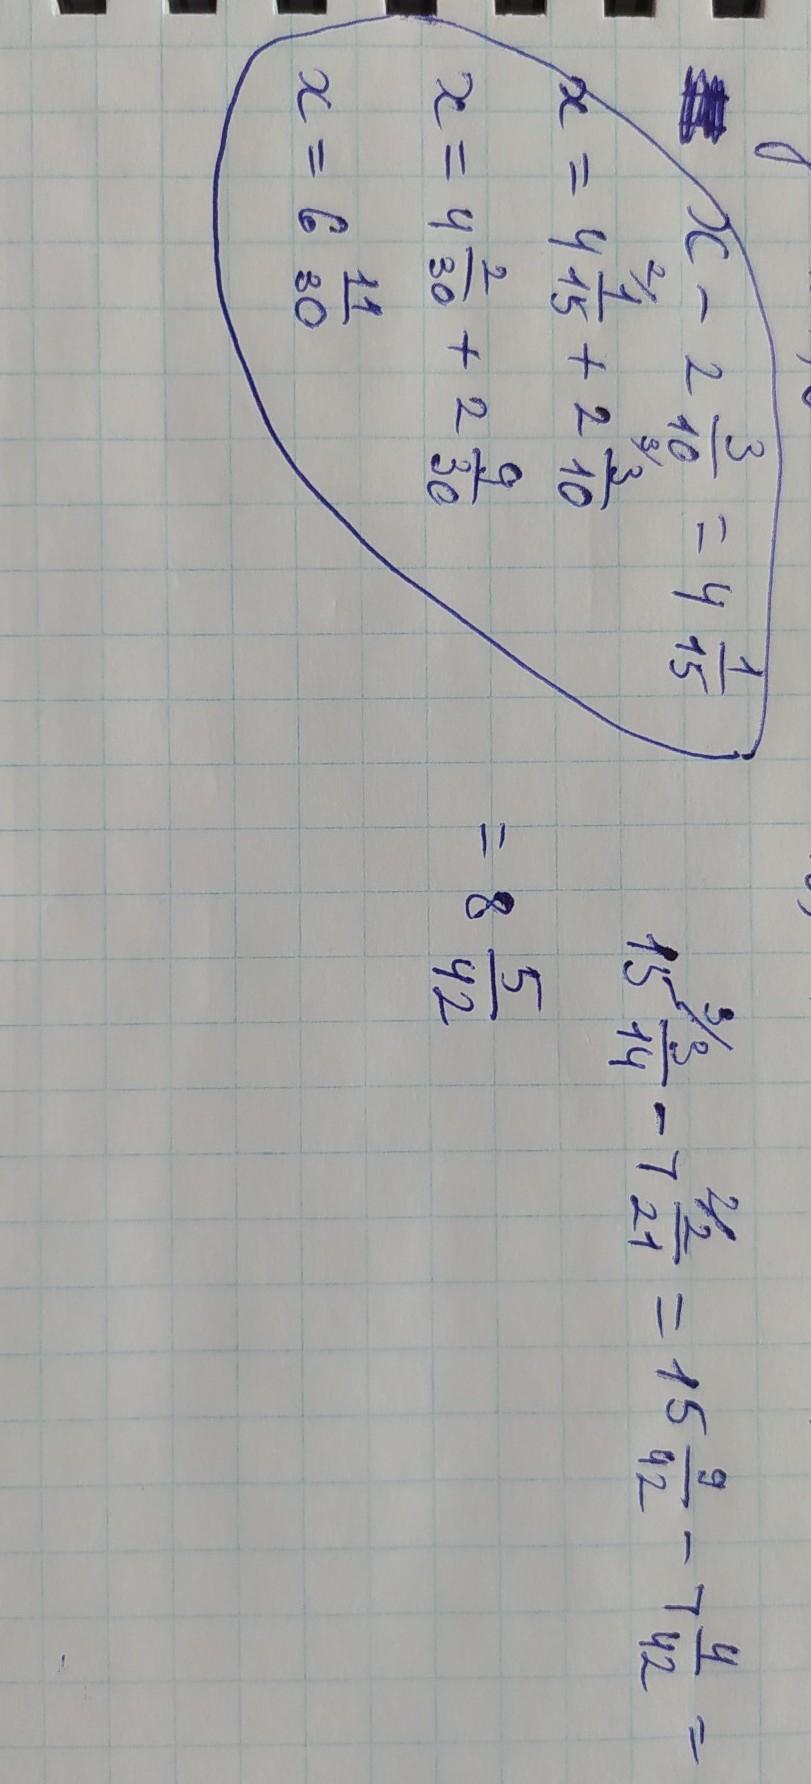 x - 2 3/10 = 4 1/15
x = 4 2/ 1/15 + 2 3/ 3/10
x = 4 2/30 + 2 9/30
x = 6 11/30
15 3/ 3/14 - 7 2/ 2/21 = 15 9/42 - 7 4/42 =
= 8 5/42